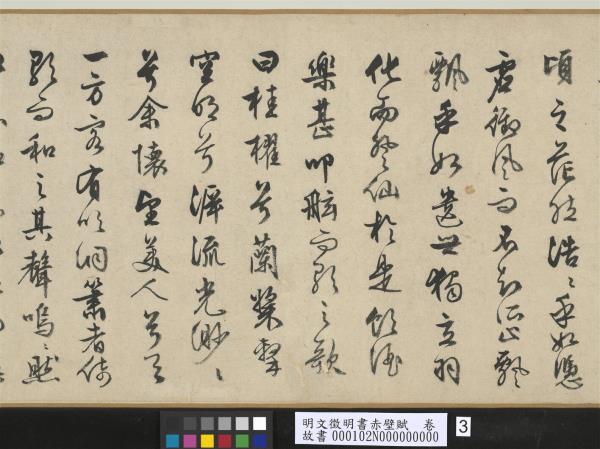 頃之茫然浩〻乎如憑
虛御風而不知所止飄
飄乎如遺世獨立羽
化而登仙於是飲酒
樂甚叩舷而歌之歌
曰桂櫂兮蘭槳擊
空明兮泝流光渺〻
兮余懷望美人兮天
一方客有吹洞簫者倚
歌而和之其聲嗚〻然
明文徵明書赤壁賦 卷
故書 000102N000000000
3